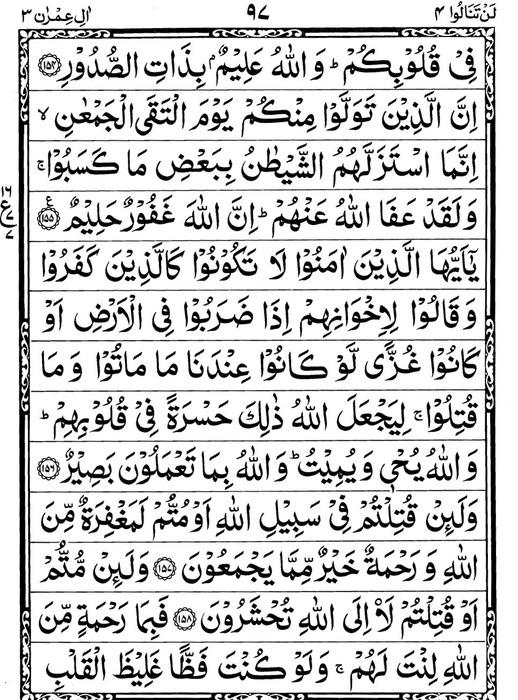 لَنْ تَنَالُوا ۴ ۹۷ اٰلِ عِمْرٰن ۳
فِیْ قُلُوْبِكُمْ ؕ وَاللّٰهُ عَلِیْمٌۢ بِذَاتِ الصُّدُوْرِ ﴿۱۵۴﴾
اِنَّ الَّذِیْنَ تَوَلَّوْا مِنْكُمْ یَوْمَ الْتَقَی الْجَمْعٰنِ ۙ
اِنَّمَا اسْتَزَلَّهُمُ الشَّیْطٰنُ بِبَعْضِ مَا كَسَبُوْا ۚ
وَلَقَدْ عَفَا اللّٰهُ عَنْهُمْ ؕ اِنَّ اللّٰهَ غَفُوْرٌ حَلِیْمٌ ﴿۱۵۵﴾ ع
۱۶ ع ۷ ۷
یٰۤاَیُّهَا الَّذِیْنَ اٰمَنُوْا لَا تَكُوْنُوْا كَالَّذِیْنَ كَفَرُوْا
وَقَالُوْا لِاِخْوَانِهِمْ اِذَا ضَرَبُوْا فِی الْاَرْضِ اَوْ
كَانُوْا غُزًّی لَّوْ كَانُوْا عِنْدَنَا مَا مَاتُوْا وَمَا
قُتِلُوْا ۚ لِیَجْعَلَ اللّٰهُ ذٰلِكَ حَسْرَةً فِیْ قُلُوْبِهِمْ ؕ
وَاللّٰهُ یُحْیٖ وَیُمِیْتُ ؕ وَاللّٰهُ بِمَا تَعْمَلُوْنَ بَصِیْرٌ ﴿۱۵۶﴾
وَلَىِٕنْ قُتِلْتُمْ فِیْ سَبِیْلِ اللّٰهِ اَوْ مُتُّمْ لَمَغْفِرَةٌ مِّنَ
اللّٰهِ وَرَحْمَةٌ خَیْرٌ مِّمَّا یَجْمَعُوْنَ ﴿۱۵۷﴾ وَلَىِٕنْ مُّتُّمْ
اَوْ قُتِلْتُمْ لَاۡاِلَی اللّٰهِ تُحْشَرُوْنَ ﴿۱۵۸﴾ فَبِمَا رَحْمَةٍ مِّنَ
اللّٰهِ لِنْتَ لَهُمْ ۚ وَلَوْ كُنْتَ فَظًّا غَلِیْظَ الْقَلْبِ